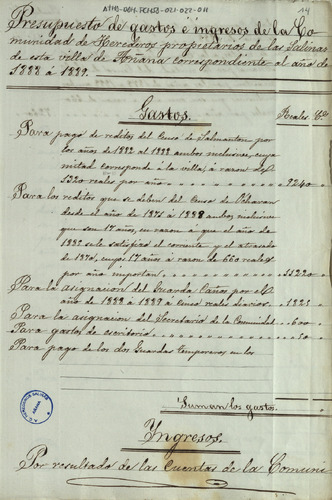 ATHA-DAH-FCHSA-021-022-011
14
Presupuesto de gastos é ingresos de la Co-
munidad de Herederos propietarios de las Salinas
de esta villa de Añana correspondiente al año de
1888 á 1889.
Gastos. Reales Cs
Para pago de reditos del Censo de Salmanton por
los años de 1882 al 1888 ambos inclusives, cuya
mitad corresponde á la villa, á razon de
1320 reales por año 9240
Para los reditos que se deben del Censo de
desde el año de 1871 á 1888 ambos inclusive
que son 17 años, en razon á que el año de
1882 se le satisfizo el corriente y el atrasado
de 1870, cuyos 17 años á razon de 660 reales
por año importan 11220
Para la asignacion del Guarda Caños por el
año de 1888 á 1889 á cinco reales diarios 1825
Para la asignacion del Secretario de la Comunidad 600
Para gastos de escritorio
Para pago de los dos Guardas temporeros en los
Suman los gastos.
Ingresos.
Por resultado de las Cuentas de la Comuni-